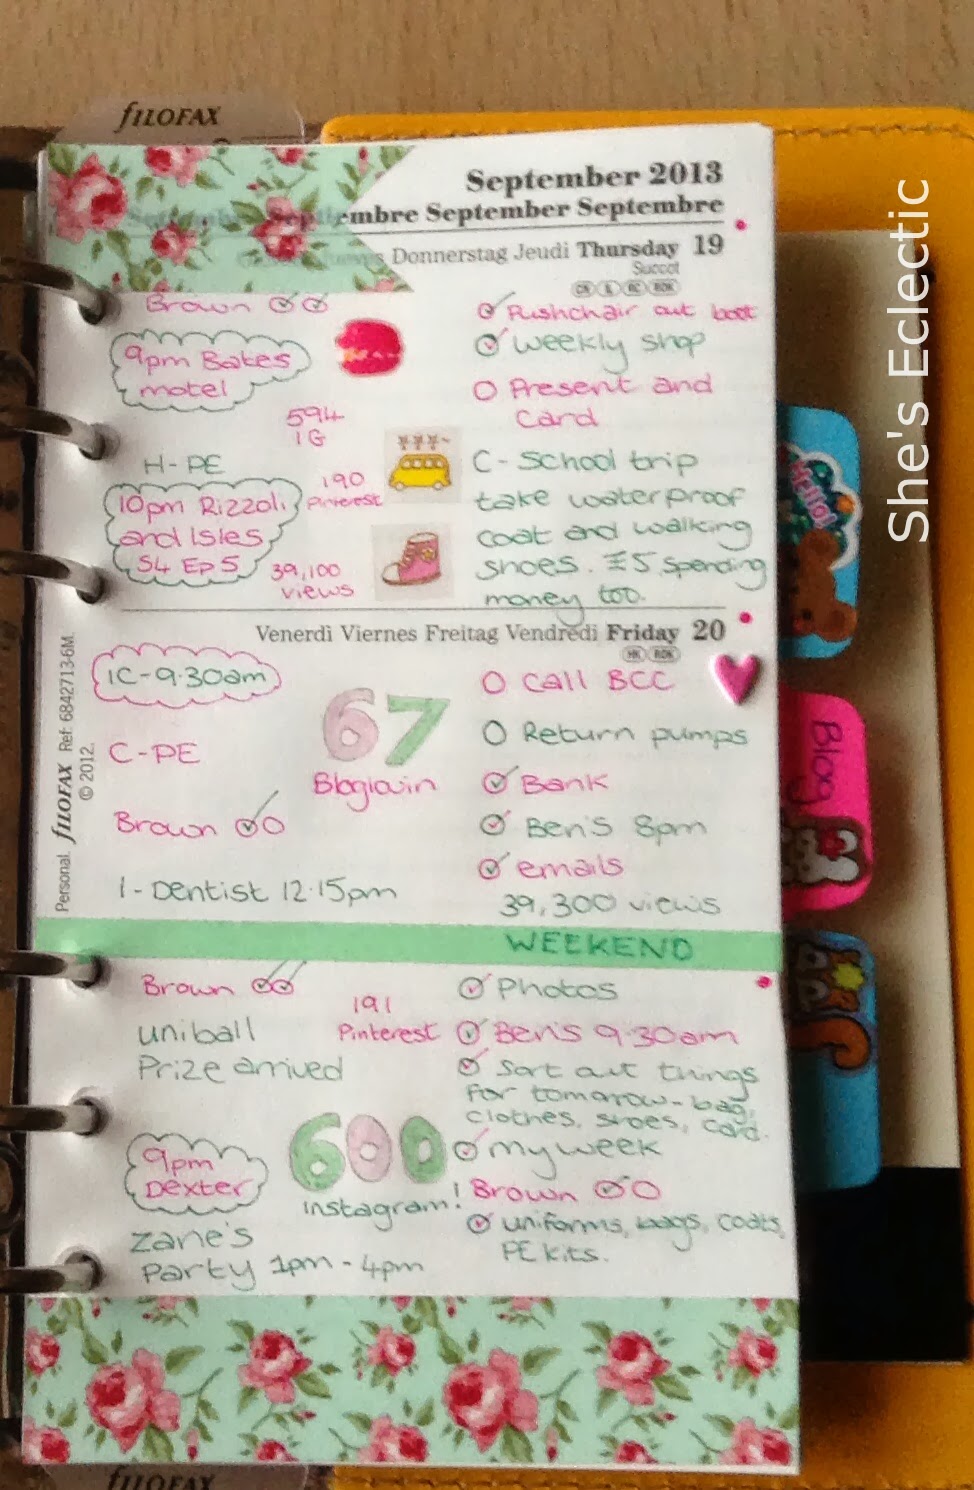 fILOFAX
September 2013
Septiembre September Septembre
Donnerstag Jeudi Thursday 19
Succot
Brown
Pushchair out boot
9pm Bates
motel
weekly shop
Present and
Card
594
IG
H-PE
190
Pinterest
10pm Rizzoli
and Isles
S4 Ep 5
39,100
views
C-School trip
take waterproof
coat and walking
shoes. £5 spending
money too.
Venerdì Viernes Freitag Vendredi Friday 20
HK ROK
1C-9.30am
67
Bloglovin
C-PE
Brown
1-Dentist 12.15pm
Call BCC
Return pumps
Bank
Ben's 8pm
emails
39,300 views
WEEKEND
Brown
uniball
Prize arrived
191
Pinterest
Photos
Ben's 9.30am
Sort out things
for tomorrow-bag,
clothes, shoes, card.
my week
Brown
uniforms, bags, coats,
PE kits.
9pm
Dexter
600
instagram!
Zane's
Party 1pm-4pm
Personal. fILOFAX Ref: 6842713-6M.
© 2012.
Hello!
Blog
She's Eclectic
fILOFAX